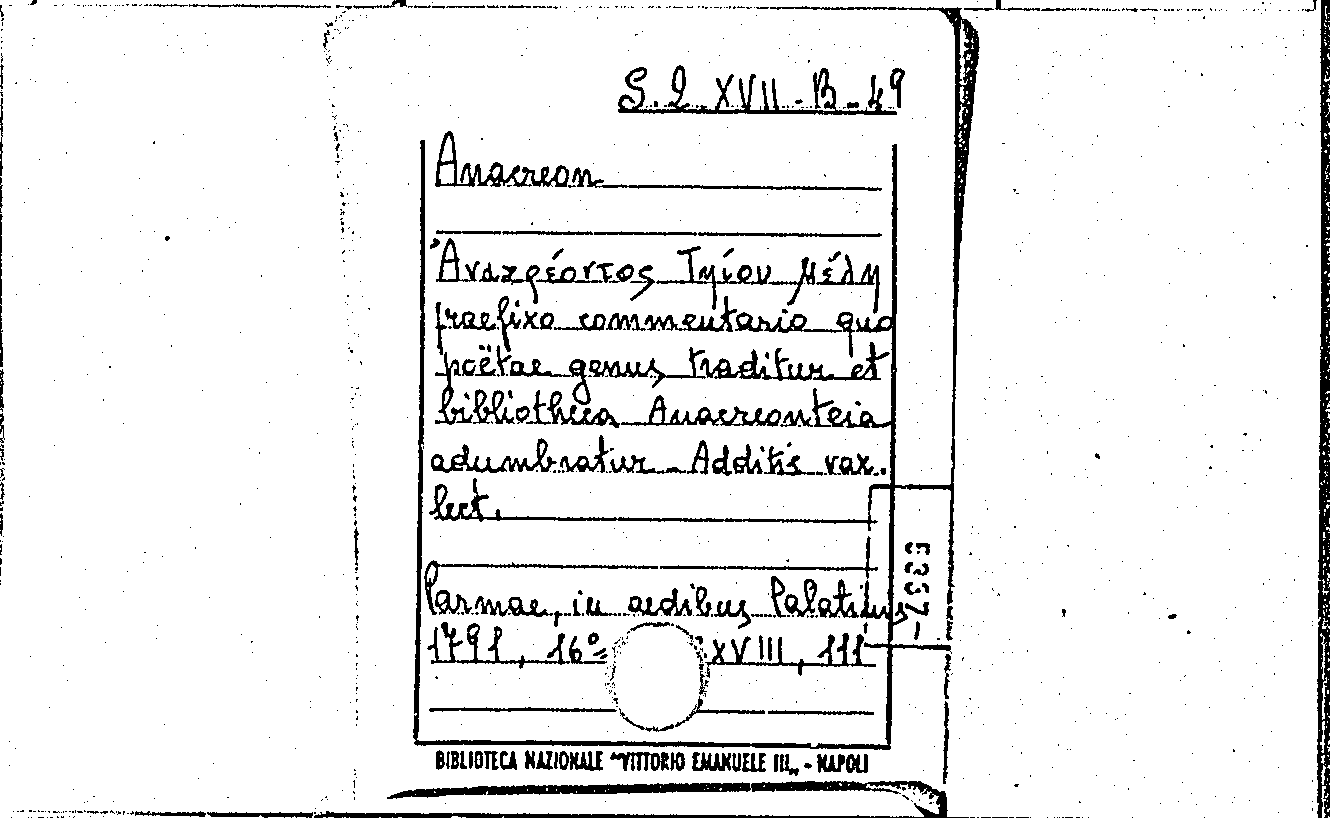 S.Q. XVII-B-49
Anacreon
Ἀνακρέοντος Τηίου μέλη
praefixo commentario quo
poëtae genus traditur et
bibliotheca Anacreonteia
adumbratur. Additis var.
lect.
Parmae, in aedibus Palatinis
1791, 16° XVIII, 111
6337-
BIBLIOTECA NAZIONALE "VITTORIO EMANUELE III„ - NAPOLI